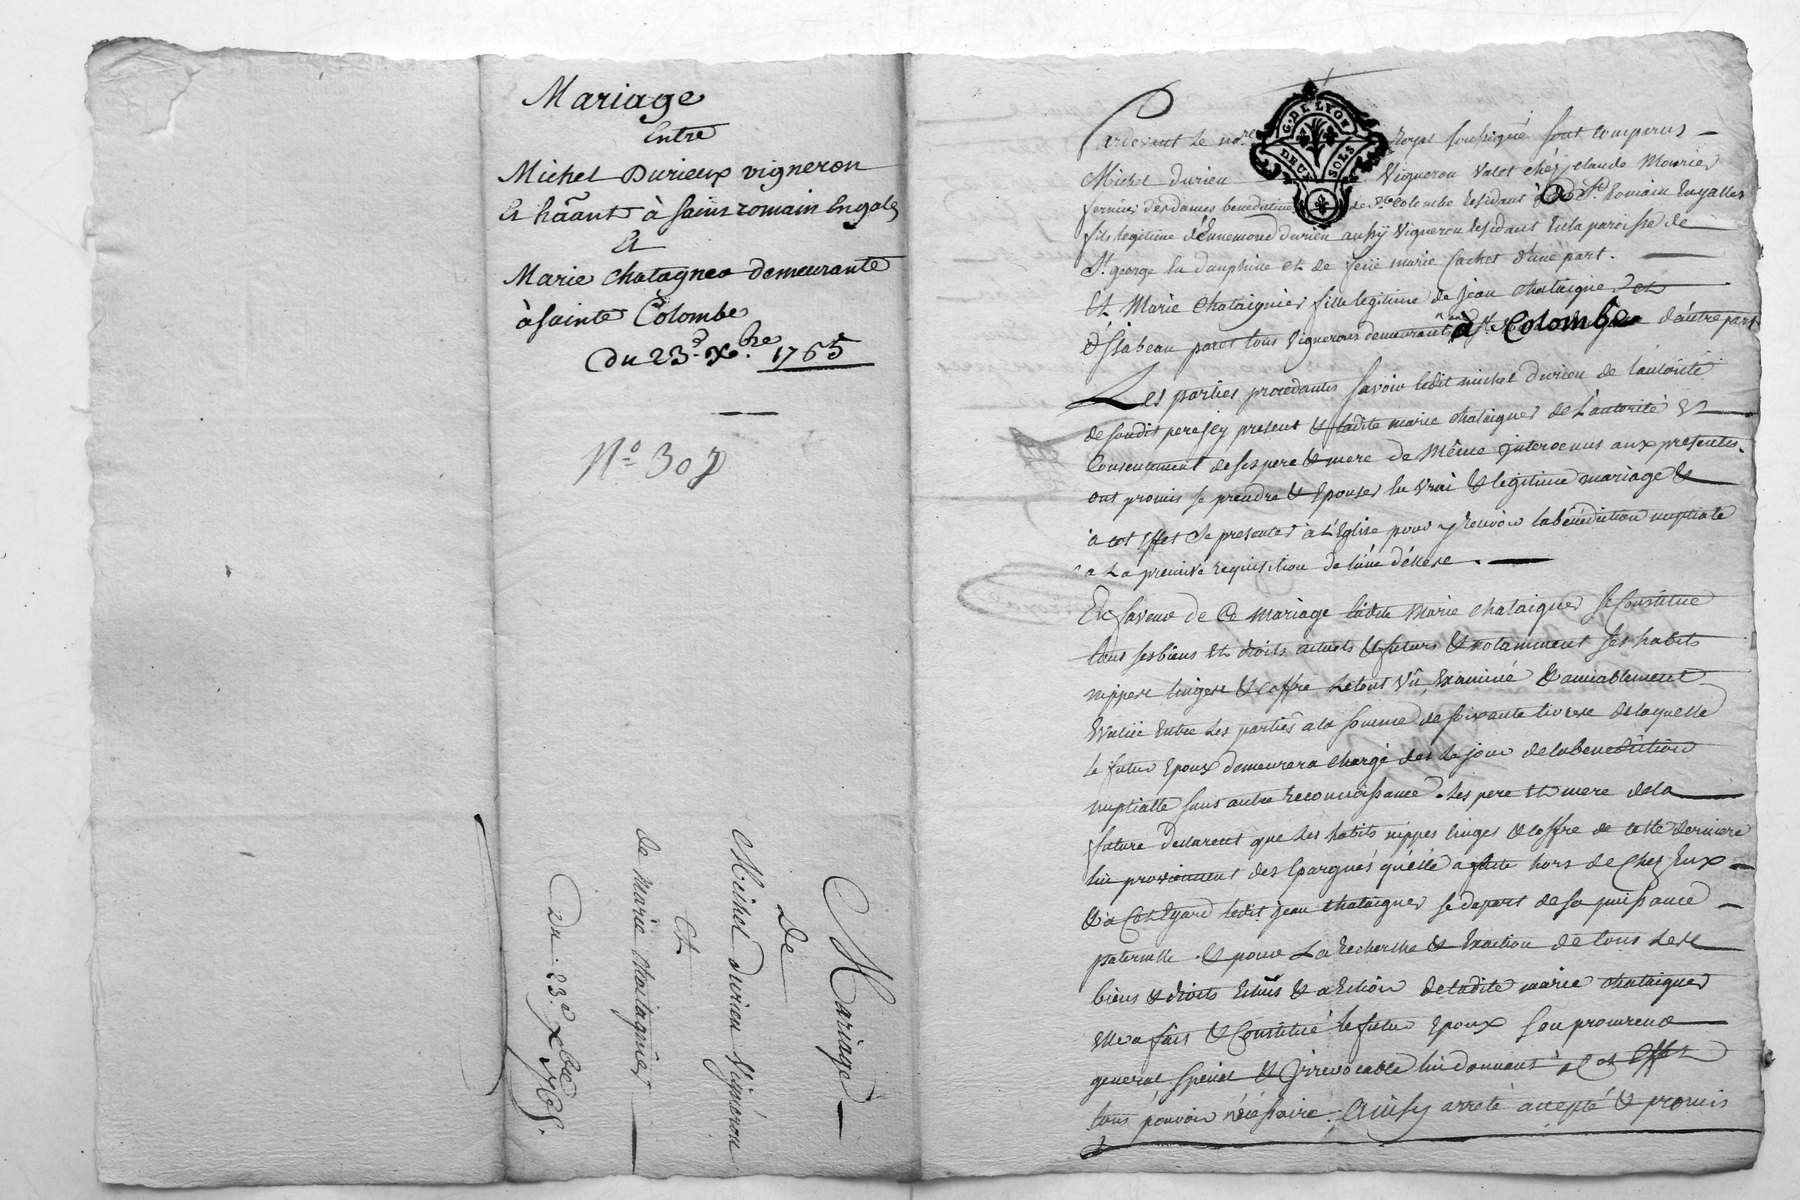 Mariage
Entre
Michel Durieux vigneron
et hãant à saint romain Engale
et
Marie chatagner demeurante
à sainte Colombe
Du 23.e Xbre 1765
N.o 307
Mariage
De
Michel durieu Vigneron
et
de marie chataigner
Du 23.e Xbre 1765.
G. DE LYON
DEUX SOLS
Pardevant Le no.re Royal soussigné sont comparus
Michel durieu Vigneron valet chéz claude Mourier
fermier des dames benedictines de Ste colombe Résidant à St. Romain Engalles
fils legitime d'Ennemond durieu aussy Vigneron Résidant En la paroisse de
St. george En dauphiné et de feüe marie sachet d'une part.
Et Marie Chataignier fille legitime de jean chataigner et
d'isabeau paret tous Vignerons demeurant à St. Colombe d'autre part
Les parties procedantes savoir ledit michel durieu de l'autorité
de son dit pere icy present & ladite marie chataigner de l'autorité et
Consentement de ses pere & mere de Même intervenus aux presentes,
ont promis se prendre & Epouser En vrai & legitime mariage &
à cet effet se presenter à L'Eglise pour y recevoir la bénédiction nuptiale
a La premiere requisition de l'une d'elles.
En faveur de Ce mariage ladite Marie chataigner se Constitue
tous ses biens et droits actuels & futurs & notamment ses habits
nippes linges & coffre Le tout vû, Examiné & amiablement
Evalué Entre Les parties a la somme de soixante livres de laquelle
le futur Epoux demeurera chargé des Le jour de la benediction
nuptialle sans autre Reconnoissance. Les pere et mere de la
future declarent que les habits nippes linges & coffre de cette derniere
lui proviennent des Epargnes qu'elle a faite hors de Chez Eux
& a Cet Egard ledit jean chataigner se depart de sa puissance
paternelle & pour La recherche & Exaction de tous Les
biens & droits Echus & a Echoir de ladite marie chataigner
Elle a fait & Constitué le futur Epoux son procureur
general special & irrevocable lui donnant à Cet Effet
tous pouvoir nécéssaire. Ainsy arreté accepté & promis